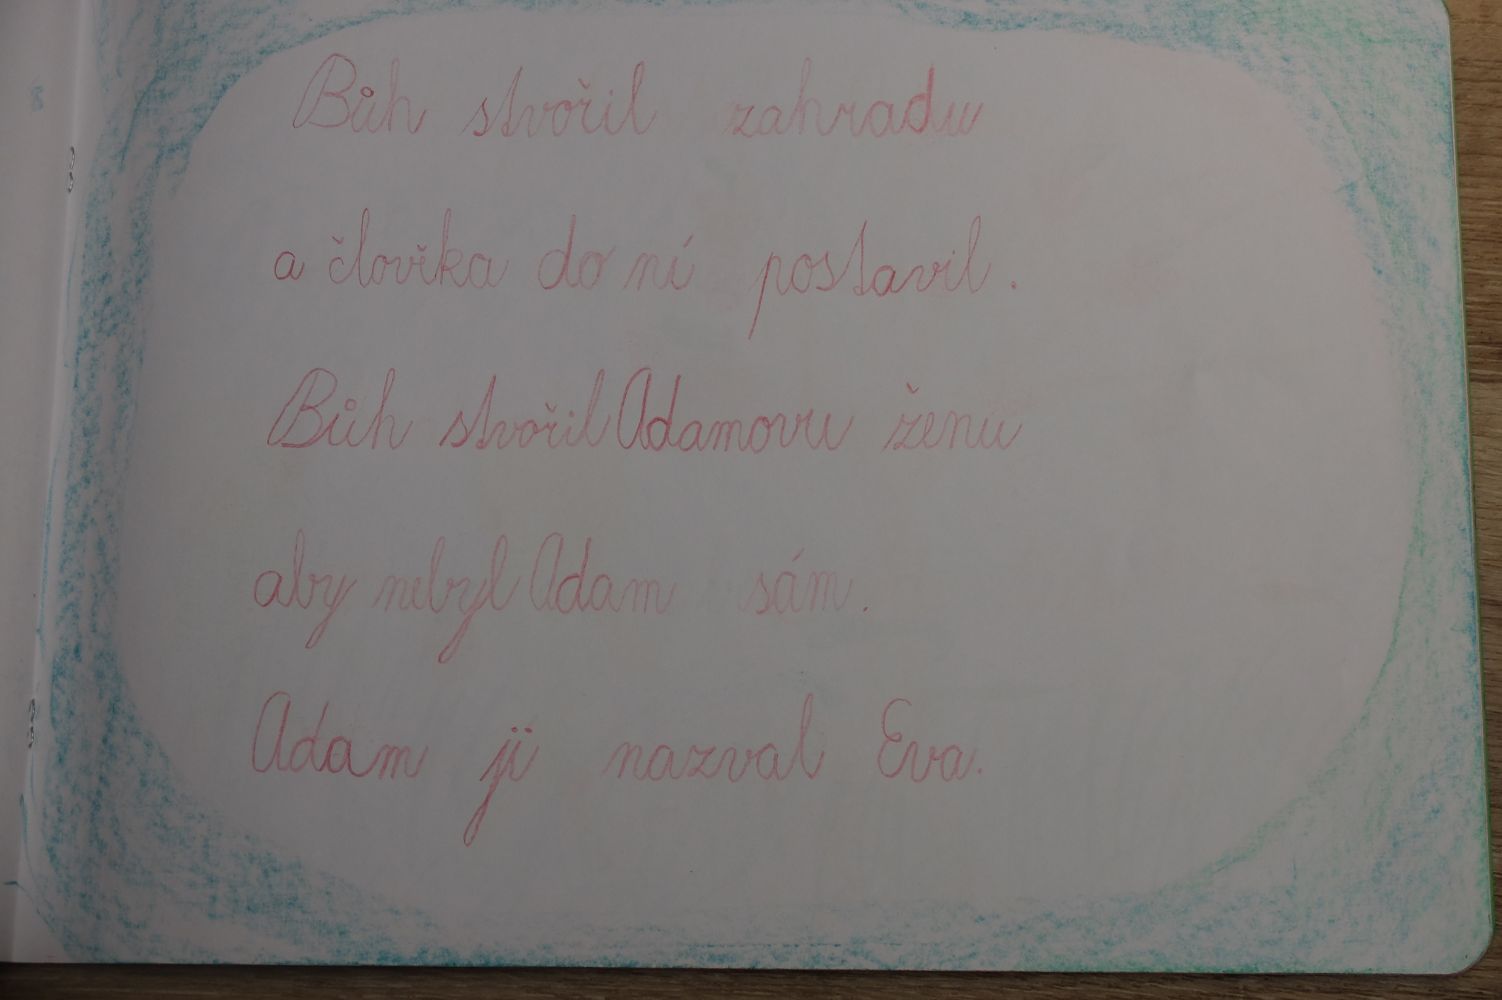 Bůh stvořil zahradu
a člověka do ní postavil.
Bůh stvořil Adamovu ženu
aby nebyl Adam sám.
Adam ji nazval Eva.